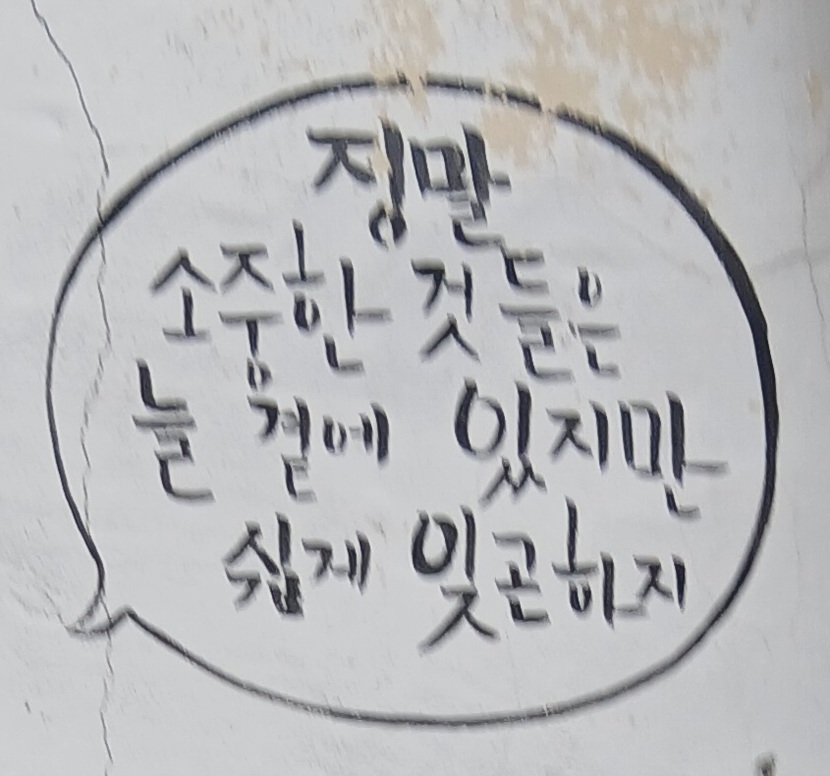 정말
소중한 것들은
늘 곁에 있지만
쉽게 잊곤하지